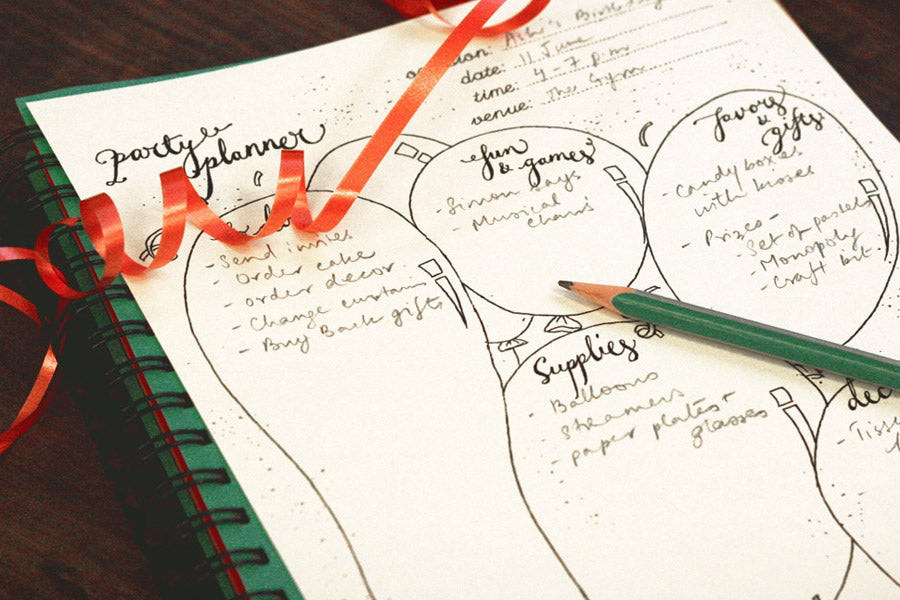 party
planner
Ash's Birthday
date: 11 June
time: 4-7 p.m
venue: The Gym
- Send invites
- Order cake
- order decor
- Change curtains
- Buy Back gifts
fun
& games
- Simon says
- Musical
chairs
favors
&
gifts
- Candy boxes
with kisses
- Prizes -
Set of pastels
- Monopoly
- Craft kit
Supplies
- Balloons
- Streamers
- paper plates +
glasses
dec
- Tiss